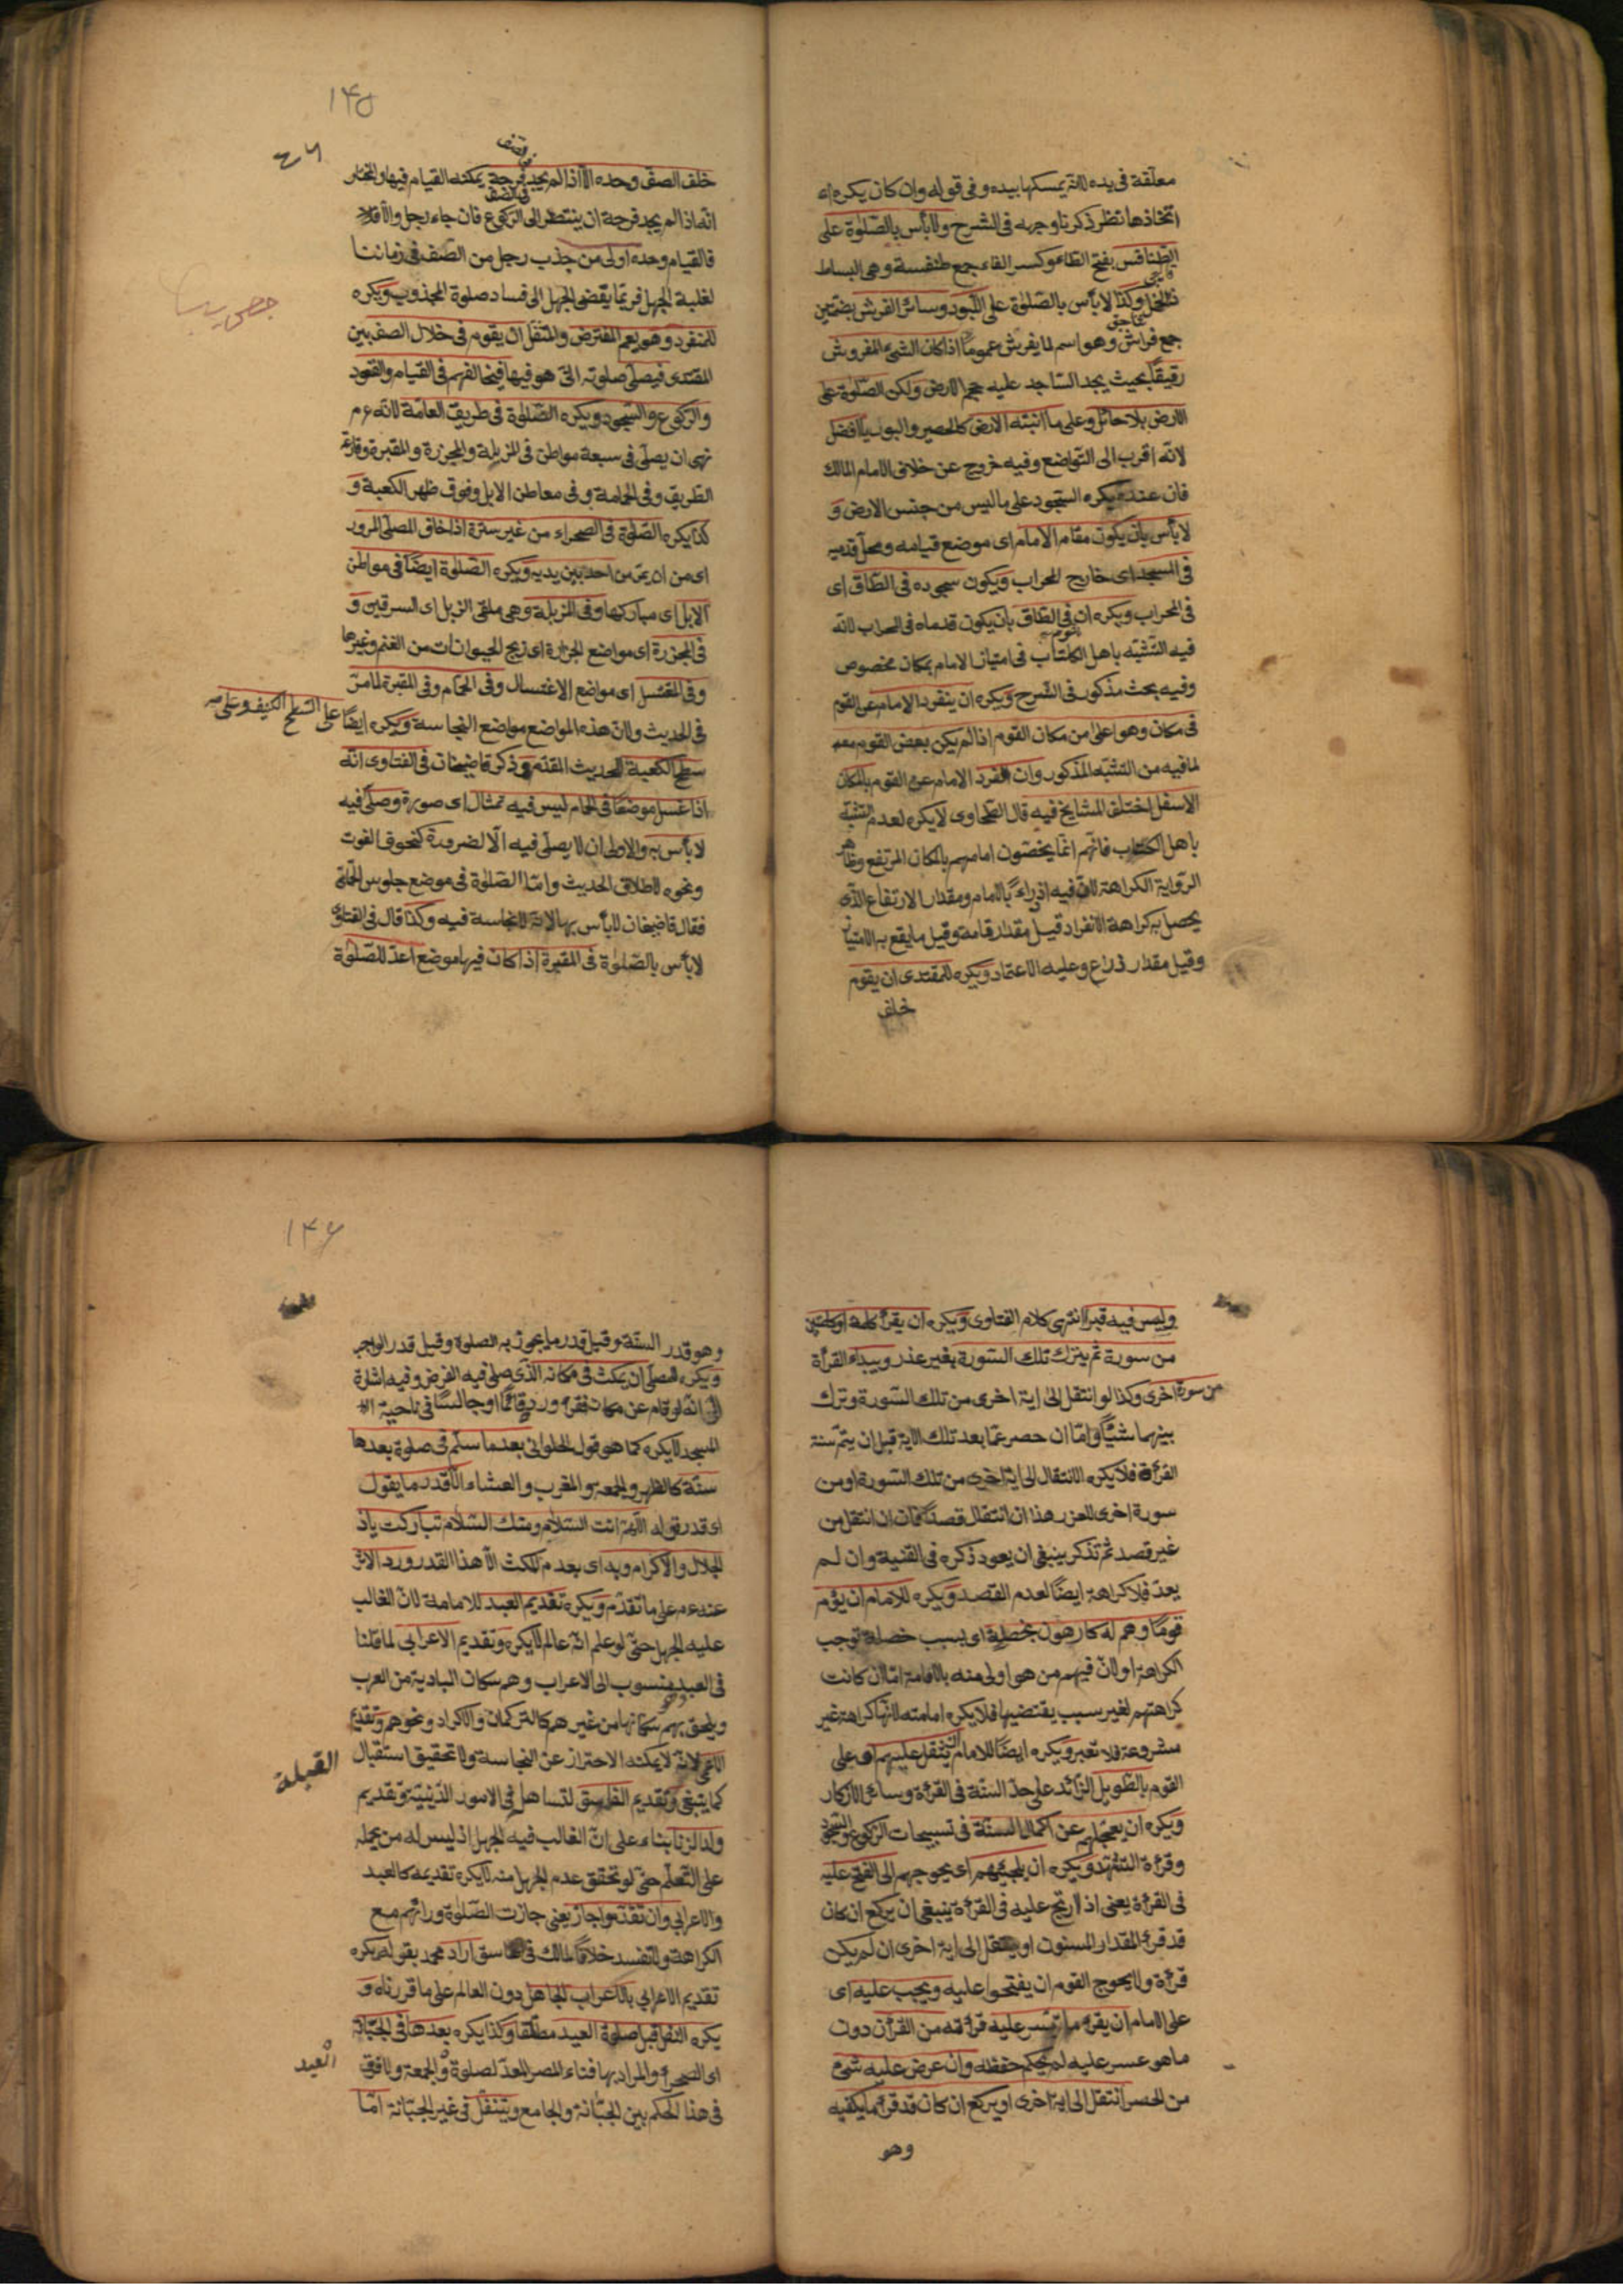 معلقة فى يده لانه يمسكها بيده وفى قوله وان كان يكره
اتخاذها نظر ذكرنا وجهه فى الشرح ولا بأس بالصلوة على
الطنافس بفتح الطاء وكسر الفاء جمع طنفسة وهى البساط
ذو الخمل وكذا لا بأس بالصلوة على اللبود وسائر الفرش بضمتين
جمع فراش وهو اسم لما يفرش عموما اذا كان الشئ المفروش
رقيقا بحيث يجد الساجد عليه حجم الارض ولكن الصلوة على
الارض بلا حائل وعلى ما انبتته الارض كالحصير والبوريا افضل
لانه اقرب الى التواضع وفيه خروج عن خلاف الامام المالك
فان عنده يكره السجود على ما ليس من جنس الارض و
لا بأس بان يكون مقام الامام اى موضع قيامه ومحل قدميه
فى المسجد اى خارج المحراب ويكون سجوده فى الطاق اى
فى المحراب ويكره ان يقوم فى الطاق بان يكون قدماه فى المحراب لانه
فيه التشبه باهل الكتاب فى امتياز الامام بمكان مخصوص
وفيه بحث مذكور فى الشرح ويكره ان ينفرد الامام عن القوم
فى مكان وهو اعلى من مكان القوم اذا لم يكن بعض القوم معه
لما فيه من التشبه المذكور وان انفرد الامام عن القوم بالمكان
الاسفل اختلف المشايخ فيه قال الطحاوى لا يكره لعدم التشبه
باهل الكتاب فانهم انما يخصون امامهم بالمكان المرتفع وظاهر
الرواية الكراهة لان فيه ازراء بالامام ومقدار الارتفاع الذى
يحصل به كراهة الانفراد قيل مقدار قامة وقيل ما يقع به الامتياز
وقيل مقدار ذراع وعليه الاعتماد ويكره للمقتدى ان يقوم
خلف
١٤٥
خلف الصف وحده الا اذا لم يجد فى الصف فرجة يمكنه القيام فيها والمختار
انه اذا لم يجد فرجة فى الصف ان ينتظر الى الركوع فان جاء رجل والا
فالقيام وحده اولى من جذب رجل من الصف فى زماننا
لغلبة الجهل فربما يفضى الجهل الى فساد صلوة المجذوب ويكره
للمنفرد وهو يعم المفترض والمتنفل ان يقوم فى خلال الصف بين
المقتدى فيصلى صلوته التى هو فيها فيخالفهم فى القيام والقعود
والركوع والسجود ويكره الصلوة فى طريق العامة لانه ع م
نهى ان يصلى فى سبعة مواطن فى المزبلة والمجزرة والمقبرة وقارعة
الطريق وفى الحمامة وفى معاطن الابل وفوق ظهر الكعبة و
كذا يكره الصلوة فى الصحراء من غير سترة اذا خاف المصلى المرور
اى من ان يمر من احد بين يديه ويكره الصلوة ايضا فى مواطن
الابل اى مباركها وفى المزبلة وهى ملقى الزبل اى السرقين و
فى المجزرة اى مواضع الجزارة اى ذبح الحيوانات من الغنم وغيرها
وفى المغتسل اى مواضع الاغتسال وفى الحمام وفى المقبرة لما مر
فى الحديث ولان هذه المواضع مواضع النجاسة ويكره ايضا على السطح الكنيف وعلى
سطح الكعبة للحديث المتقدم وذكر قاضيخان فى الفتاوى انه
اذا غسل موضعا فى الحمام ليس فيه تمثال اى صورة وصلى فيه
لا بأس به والاولى ان لا يصلى فيه الا لضرورة كخوف الفوت
ونحوه لاطلاق الحديث واما الصلوة فى موضع جلوس الحمامى
فقال قاضيخان لا بأس بها لانه لا نجاسة فيه وكذا قال فى الفتاوى
لا بأس بالصلوة فى المقبرة اذا كان فيها موضع اعد للصلوة
وليس فيه قبر انتهى كلام الفتاوى ويكره ان يقرأ كلمة او كلمتين
من سورة ثم يترك تلك السورة بغير عذر ويبدأ القرأة
من سورة اخرى وكذا لو انتقل الى اية اخرى من تلك السورة وترك
بينهما شيئا واما ان حصر عما بعد تلك الاية قبل ان يتم سنة
القرأة فلا يكره الانتقال الى اية اخرى من تلك السورة او من
سورة اخرى للعذر هذا ان انتقال قصدا فان انتقل من
غير قصد ثم تذكر ينبغى ان يعود ذكره فى القنية وان لم
يعد فلا كراهة ايضا لعدم القصد ويكره للامام ان يؤم
قوما وهم له كارهون بخصلة اى بسبب خصلة توجب
الكراهة او لان فيهم من هو اولى منه بالامامة اما ان كانت
كراهتهم لغير سبب يقتضيها فلا يكره امامته لانها كراهة غير
مشروعة فلا تعبر ويكره ايضا للامام ان يثقل عليهم اى على
القوم بالتطويل الزائد على حد السنة فى القرأة وسائر الاذكار
ويكره ان يعجلهم عن اكمال السنة فى تسبيحات الركوع والسجود
وقرأة التشهد ويكره ان يلجئهم اى يحوجهم الى الفتح عليه
فى القرأة يعنى اذا ارتج عليه فى القرأة ينبغى ان يركع ان كان
قد قرأ المقدار المسنون او ينتقل الى اية اخرى ان لم يكن
قرأه ولا يحوج القوم ان يفتحوا عليه ويجب عليه اى
على الامام ان يقرأ ما تيسر عليه قرأته من القرأن دون
ما هو عسر عليه لم يحكم حفظه وان عرض عليه شئ
من الحصر انتقل الى اية اخرى او يركع ان كان قد قرأ ما يكفيه
وهو
١٤٦
وهو قدر السنة وقيل قدر ما يجوز به الصلوة وقيل قدر الواجب
ويكره للمصلى ان يمكث فى مكانه الذى صلى فيه الفرض وفيه اشارة
الى انه لو قام عن مكان فقرأ ورده قائما او جالسا فى ناحية
المسجد لا يكره كما هو قول الحلوانى بعد ما سلم فى صلوة بعدها
سنة كالظهر والجمعة والمغرب والعشاء الا قدر ما يقول
اى قدر قوله اللهم انت السلام ومنك السلام تباركت ياذا
الجلال والاكرام وبه اى بعدم المكث الا هذا القدر ورد الاثر
عنه ع م على ما تقدم ويكره تقديم العبد للامامة لان الغالب
عليه الجهل حتى لو علم انه عالم لا يكره وتقديم الاعرابى لما قلنا
فى العبد وهو منسوب الى الاعراب وهم سكان البادية من العرب
ويلحق بهم سكانها من غيرهم كالتركمان والاكراد ونحوهم وتقديم
الاعمى لانه لا يمكنه الاحتراز عن النجاسة ولا تحقيق استقبال القبلة
كما ينبغى وتقديم الفاسق لتساهل فى الامور الدينية وتقديم
ولد الزنا بناء على ان الغالب فيه الجهل اذ ليس له من يحمله
على التعلم حتى لو تحقق عدم الجهل منه لا يكره تقديمه كالعبد
والاعرابى وان تقدموا جاز يعنى جازت الصلوة ورائهم مع
الكراهة ولا تفسد خلافا لمالك فى الفاسق اراد محمد بقوله يكره
تقديم الاعرابى بالاعراب الجاهل دون العالم على ما قررناه و
يكره التنفل قبل صلوة العيد مطلقا وكذا يكره بعدها فى الجبانة
اى الصحراء والمراد بها فناء المصر المعد لصلوة العيد والجمعة ولا فرق
فى هذا الحكم بين الجبانة والجامع ويتنفل فى غير الجبانة اما